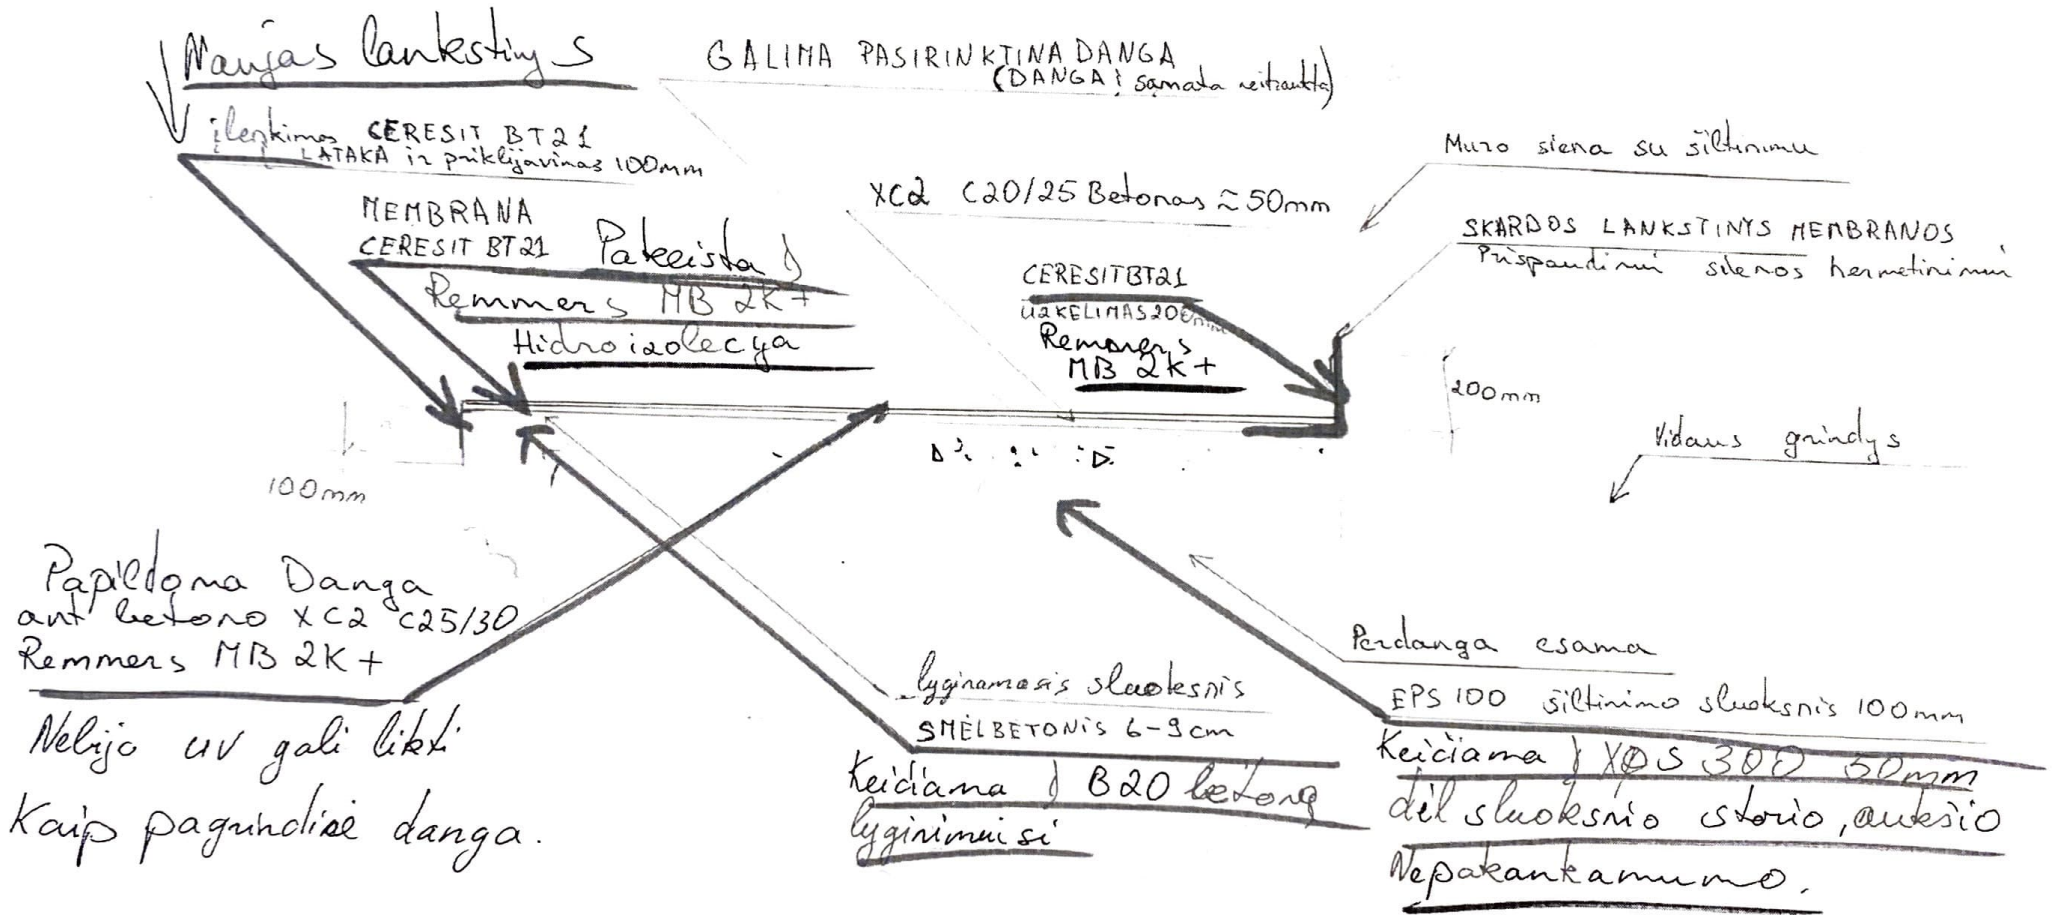 Naujas lankstinys
GALIMA PASIRINKTINA DANGA
(DANGA į samata neitraukta)
įlenkimas CERESIT BT21
LATAKA ir priklijavimas 100mm
Muro siena su šiltinimu
MEMBRANA
CERESIT BT21 Pakeista į
Remmers MB 2K+
Hidroizolecija
XC2 C20/25 Betonas ≈50mm
SKARDOS LANKSTINYS MEMBRANOS
Prispaudimui silenos hermetinimui
CERESIT BT21
UŽKELIMAS 200mm
Remmers
MB 2K+
200mm
Vidaus grindys
100mm
Papildoma Danga
ant betono XC2 C25/30
Remmers MB 2K+
Nebijo UV gali likti
Kaip pagrindinė danga.
Perdanga esama
lyginamasis sluoksnis
SMĖLBETONIS 6-9cm
Keičiama į B20 betoną
lyginimuisi
EPS 100 šiltinimo sluoksnis 100mm
Keičiama į XPS 300 50mm
dėl sluoksnio storio, aukščio
Nepakankamumo.